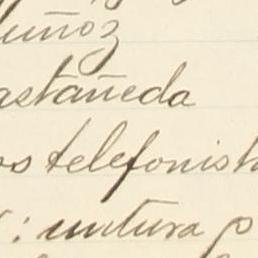 uñoz
astañeda
os telefonist
: untura p